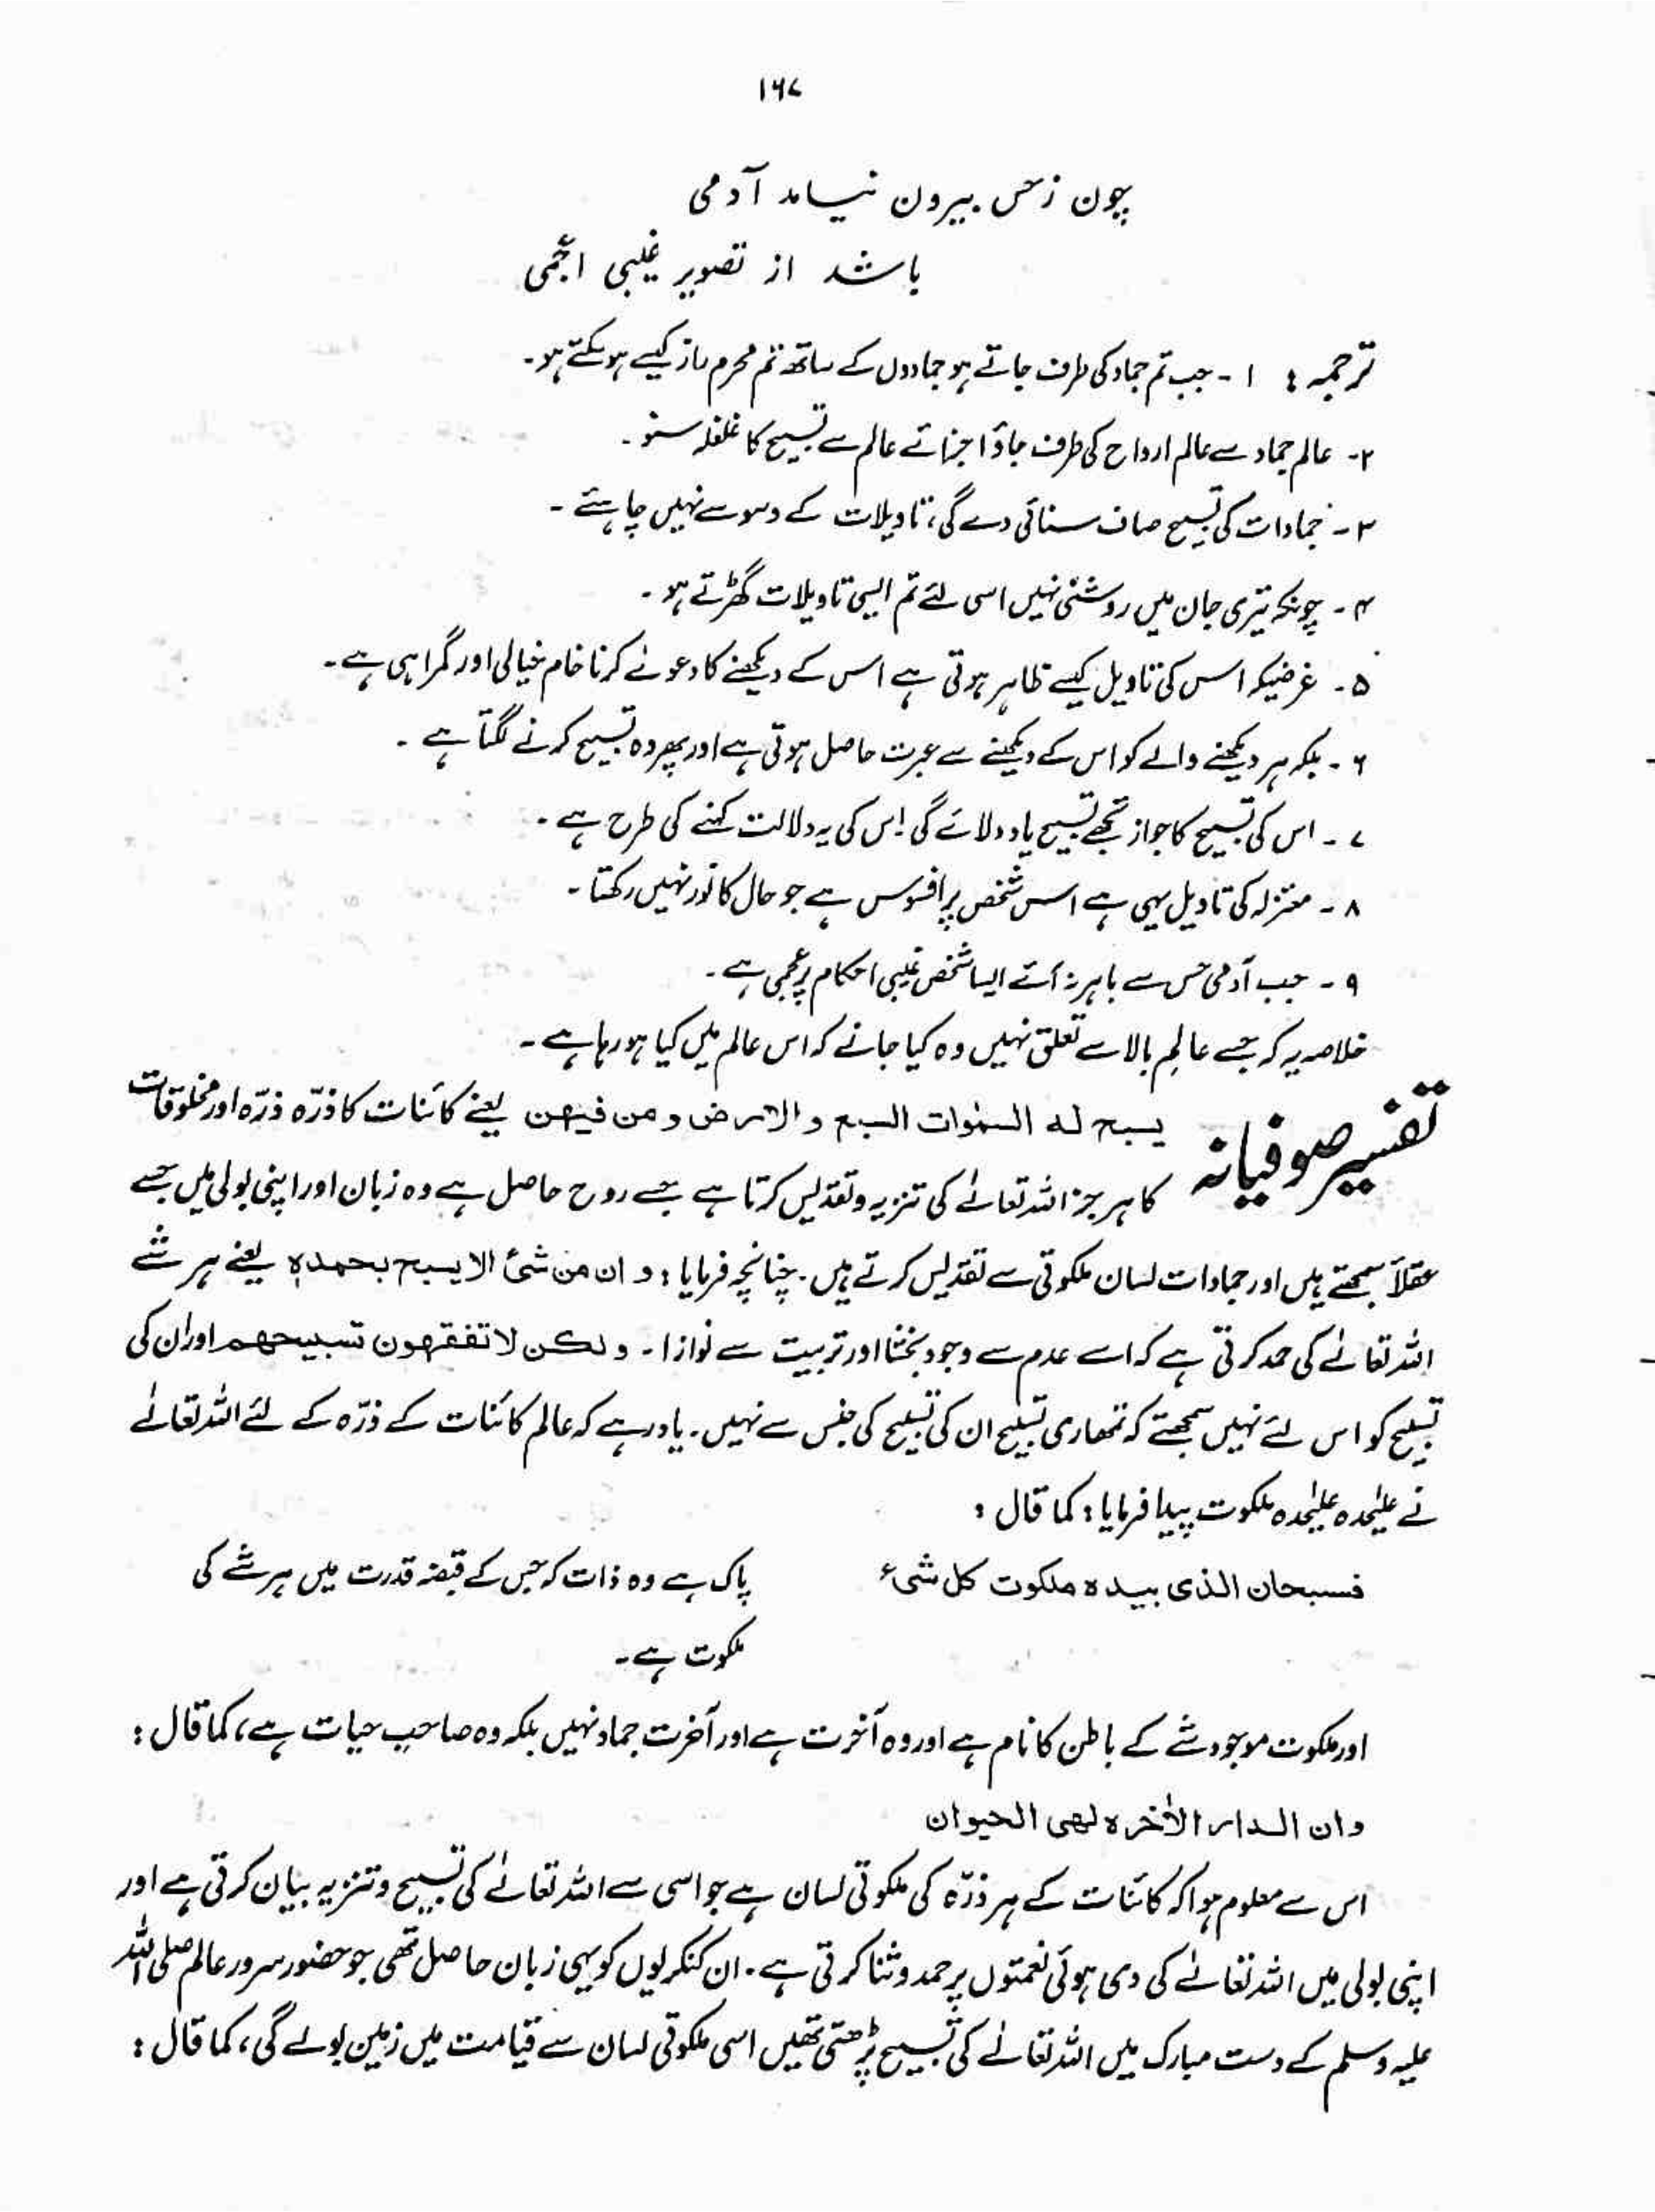 ۱۶۷
چون ز حس بیرون نیامد آدمی
باشد از تصویر غیبی اعجمی
ترجمہ : ۱ - جب تم جماد کی طرف جاتے ہو جمادوں کے ساتھ تم محرم راز کیسے ہو سکتے ہو۔
۲- عالم جماد سے عالم ارواح کی طرف جاؤ اجزائے عالم سے تسبیح کا غلغلہ سنو۔
۳- جمادات کی تسبیح صاف سنائی دے گی، تاویلات کے وسوسے نہیں چاہئے -
۴- چونکہ تیری جان میں روشنی نہیں اسی لئے تم ایسی تاویلات گھڑتے ہو -
۵- غرضیکہ اس کی تاویل کیسے ظاہر ہوتی ہے اس کے دیکھنے کا دعوٰے کرنا خام خیالی اور گمراہی ہے۔
۶- بلکہ ہر دیکھنے والے کو اس کے دیکھنے سے عبرت حاصل ہوتی ہے اور پھر وہ تسبیح کرنے لگتا ہے -
۷- اس کی تسبیح کا جواز تجھے تسبیح یاد دلائے گی اس کی یہ دلالت کہنے کی طرح ہے -
۸- معتزلہ کی تاویل یہی ہے اس شخص پر افسوس ہے جو حال کا نور نہیں رکھتا -
۹- جب آدمی حس سے باہر نہ آئے ایسا شخص غیبی احکام پر عجمی ہے -
خلاصہ یہ کہ جسے عالمِ بالا سے تعلق نہیں وہ کیا جانے کہ اس عالم میں کیا ہو رہا ہے -
تفسیر صوفیانہ یسبح له السمٰوات السبع والارض ومن فیهن یعنے کائنات کا ذرّہ ذرّہ اور مخلوقات
کا ہر جز اللہ تعالٰے کی تنزیہ و تقدیس کرتا ہے جسے روح حاصل ہے وہ زبان اور اپنی بولی میں جسے
عقلاً سمجھتے ہیں اور جمادات لسان ملکوتی سے تقدیس کرتے ہیں۔ چنانچہ فرمایا : و ان من شئ الا یسبح بحمدہ یعنے ہر شے
اللہ تعالٰے کی حمد کرتی ہے کہ اسے عدم سے وجود بخشا اور تربیت سے نوازا۔ ولکن لا تفقهون تسبیحهم اور ان کی
تسبیح کو اس لئے نہیں سمجھتے کہ تمھاری تسبیح ان کی تسبیح کی جنس سے نہیں۔ یاد رہے کہ عالم کائنات کے ذرّہ کے لئے اللہ تعالٰے
نے علیٰحدہ علیٰحدہ ملکوت پیدا فرمایا : کما قال :
فسبحان الذی بیدہ ملکوت کل شیء پاک ہے وہ ذات کہ جس کے قبضہ قدرت میں ہر شے کی
ملکوت ہے۔
اور ملکوت موجود شے کے باطن کا نام ہے اور وہ آخرت ہے اور آخرت جماد نہیں بلکہ وہ صاحبِ حیات ہے، کما قال :
وان الدار الاٰخرہ لهی الحیوان
اس سے معلوم ہوا کہ کائنات کے ہر ذرّہ کی ملکوتی لسان ہے جو اسی سے اللہ تعالٰے کی تسبیح و تنزیہ بیان کرتی ہے اور
اپنی بولی میں اللہ تعالٰے کی دی ہوئی نعمتوں پر حمد و ثنا کرتی ہے۔ ان کنکریوں کو یہی زبان حاصل تھی جو حضور سرور عالم صلی اللہ
علیہ وسلم کے دست مبارک میں اللہ تعالٰے کی تسبیح پڑھتی تھیں اسی ملکوتی لسان سے قیامت میں زمین بولے گی، کما قال :